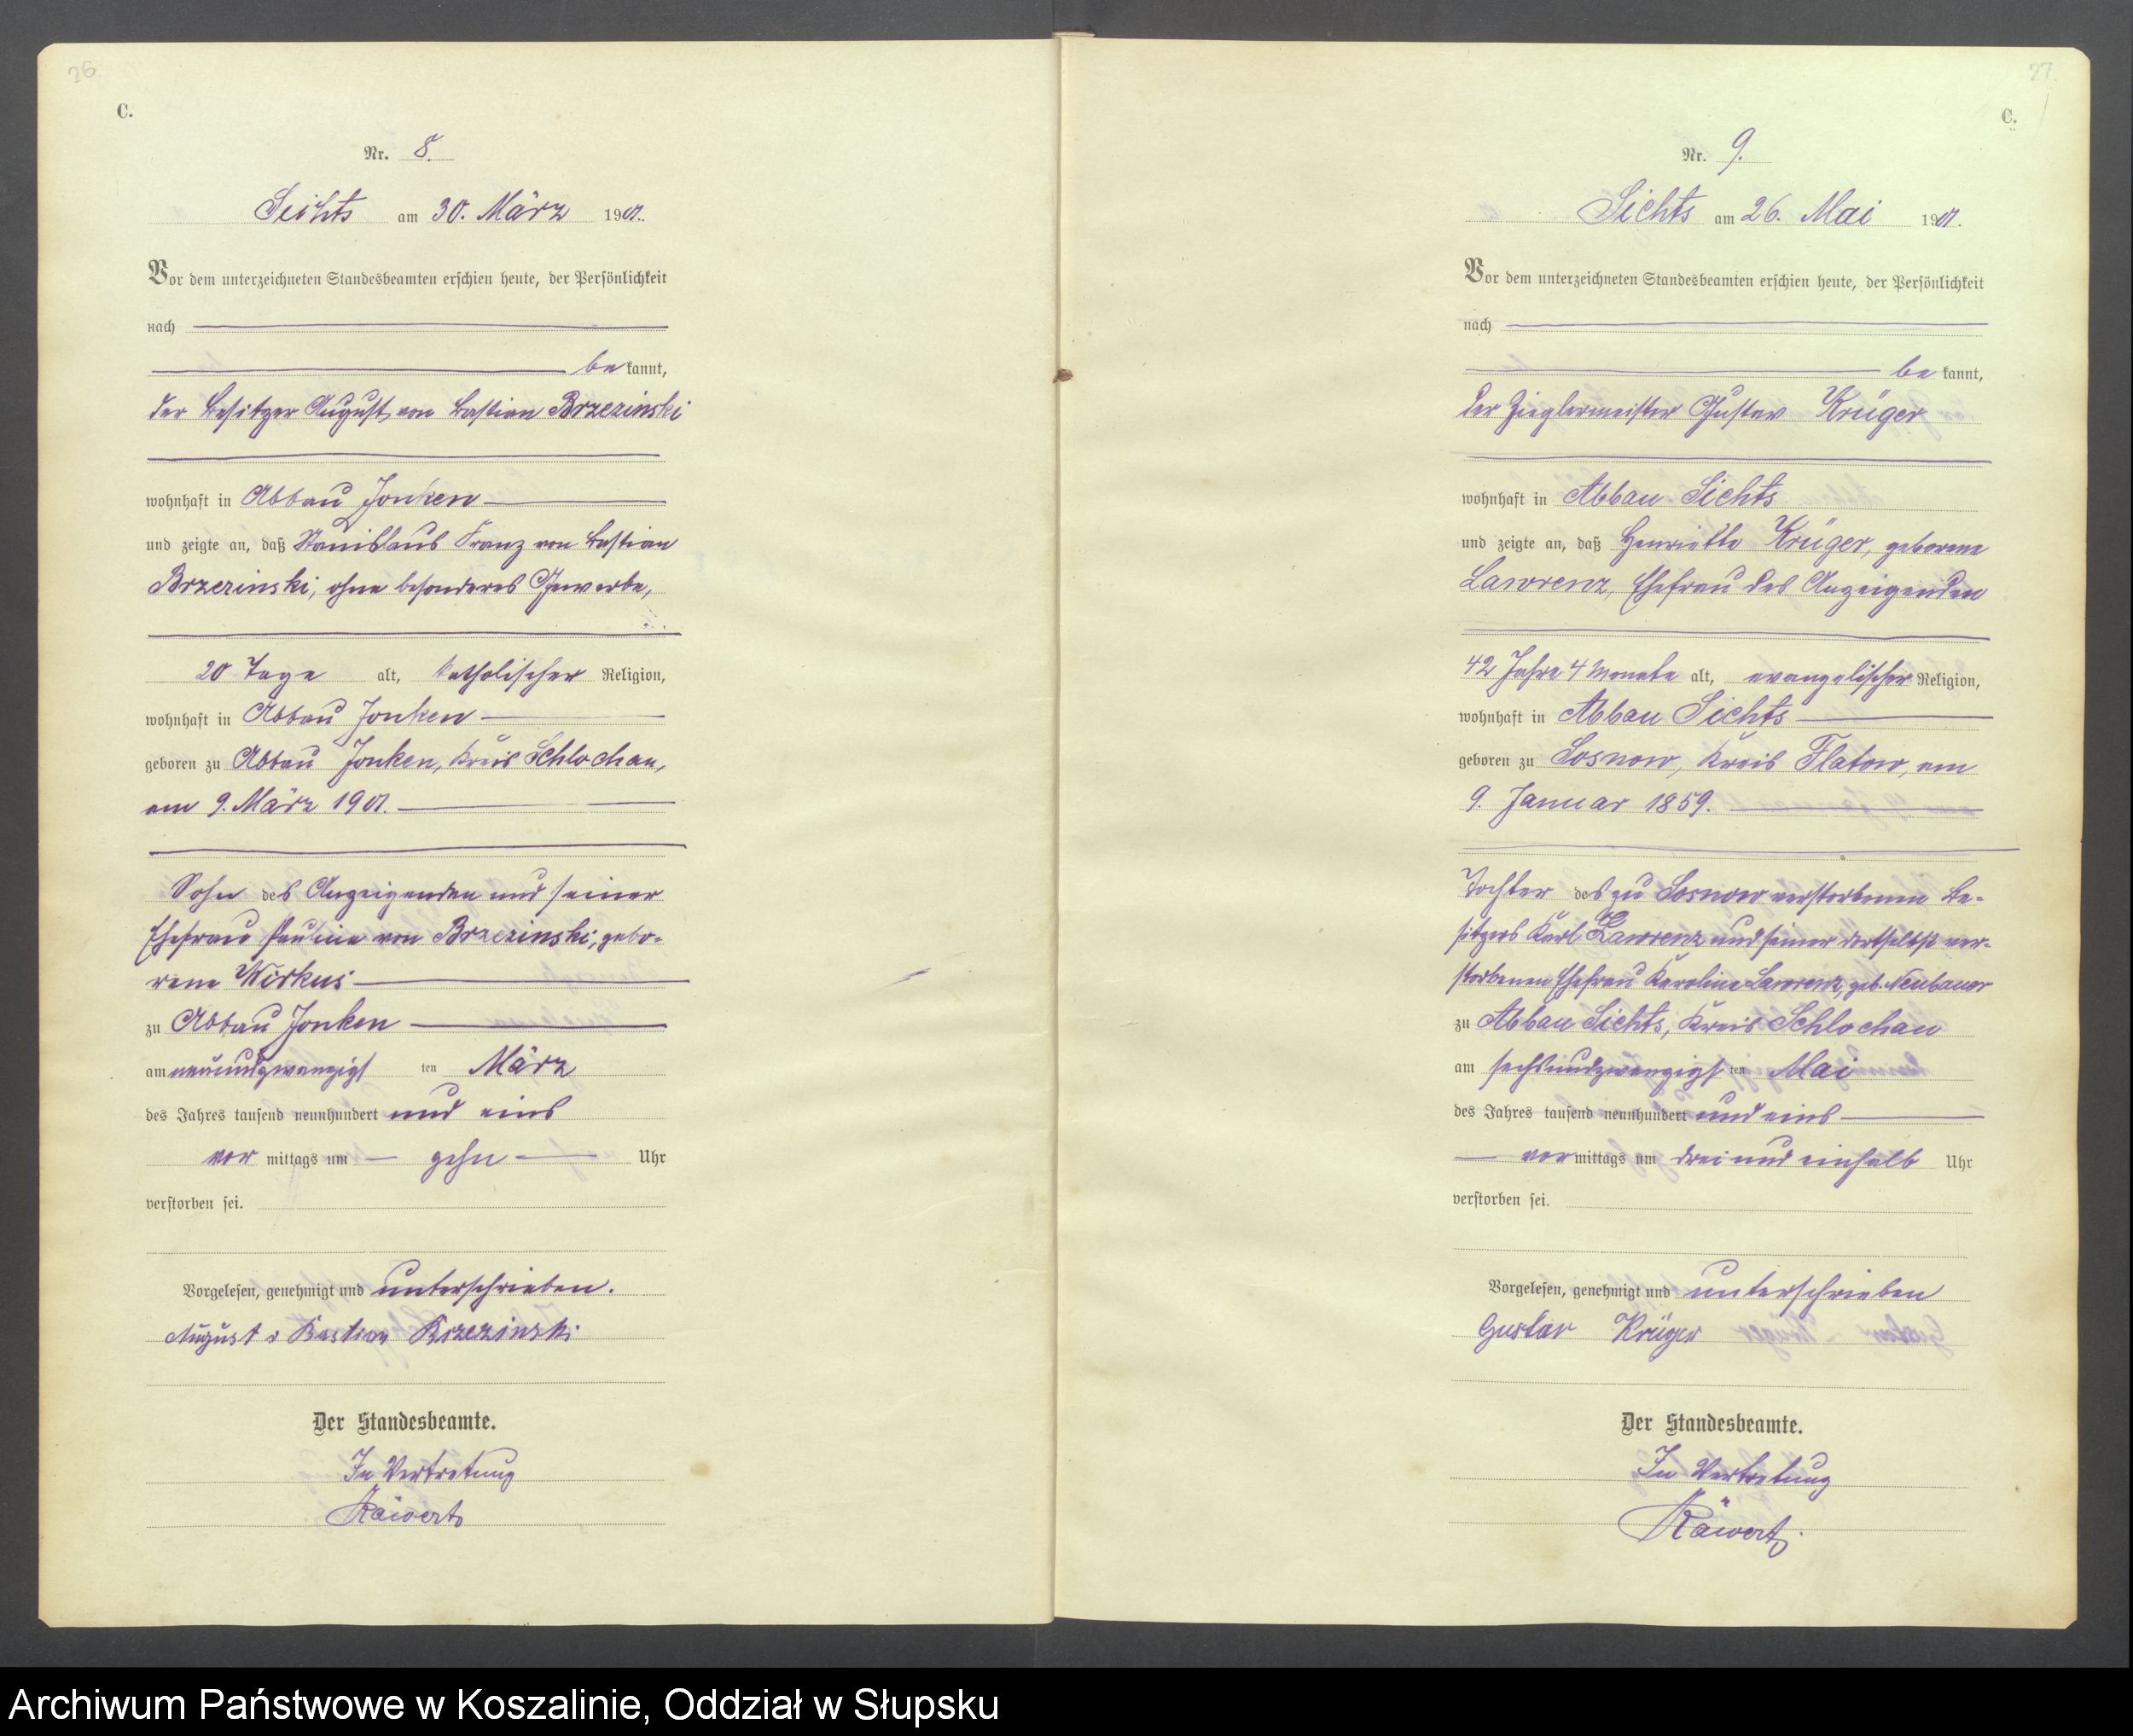 26.
C.
Nr. 8.
Sichts am 30. März 1901.
Vor dem unterzeichneten Standesbeamten erschien heute, der Persönlichkeit
nach
bekannt,
der Besitzer August von Bastian Brzezinski
wohnhaft in Abbau Jonken
und zeigte an, daß Stanislaus Franz von Bastian
Brzezinski, ohne besonderes Gewerbe,
20 Tage alt, katholischer Religion,
wohnhaft in Abbau Jonken
geboren zu Abbau Jonken, Kreis Schlochau,
am 9. März 1901.
Sohn des Anzeigenden und seiner
Ehefrau Pauline von Brzezinski, gebo-
rene Wirkus
zu Abbau Jonken
am neunundzwanzigsten März
des Jahres tausend neunhundert und eins
vormittags um zehn Uhr
verstorben sei.
Vorgelesen, genehmigt und unterschrieben.
August v Bastian Brzezinski
Der Standesbeamte.
In Vertretung
Räwert
27.
C.
Nr. 9.
Sichts am 26. Mai 1901.
Vor dem unterzeichneten Standesbeamten erschien heute, der Persönlichkeit
nach
bekannt,
der Zieglermeister Gustav Krüger
wohnhaft in Abbau Sichts
und zeigte an, daß Henriette Krüger, geborene
Lawrenz, Ehefrau des Anzeigenden
42 Jahre 4 Monate alt, evangelischer Religion,
wohnhaft in Abbau Sichts
geboren zu Sosnow, Kreis Flatow, am
9. Januar 1859.
Tochter des zu Sosnow verstorbenen Be-
sitzers Karl Lawrenz und seiner dortselbst ver-
storbenen Ehefrau Karoline Lawrenz, geb. Neubauer
zu Abbau Sichts, Kreis Schlochau
am sechsundzwanzigsten Mai
des Jahres tausend neunhundert und eins
vormittags um drei und einhalb Uhr
verstorben sei.
Vorgelesen, genehmigt und unterschrieben
Gustav Krüger
Der Standesbeamte.
In Vertretung
Räwert.
Archiwum Państwowe w Koszalinie, Oddział w Słupsku